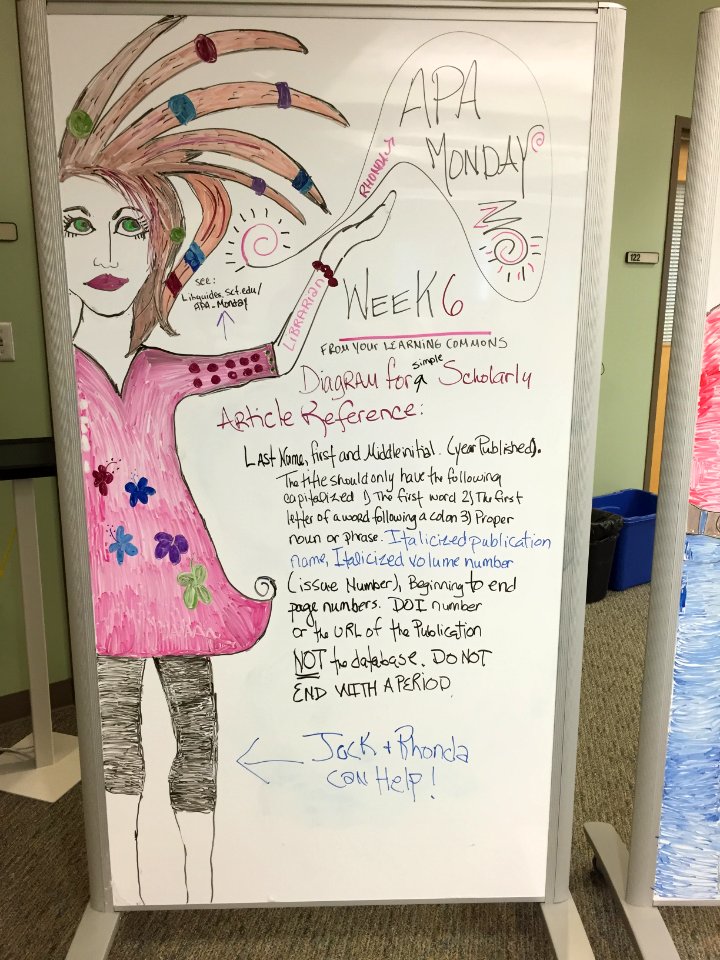 APA
MONDAY
RHONDA
see:
Libguides.sct.edu/
APA-Monday
LIBRARIAN
WEEK 6
FROM YOUR LEARNING COMMONS
Diagram for a simple Scholarly
Article Reference:
Last Name, first and Middle initial. (year Published).
The title should only have the following
capitalized 1) The first word 2) The first
letter of a word following a colon 3) Proper
noun or phrase. Italicized publication
name, Italicized volume number
(issue Number), Beginning to end
page numbers. DOI number
or the URL of the Publication
NOT the database. DO NOT
END WITH A PERIOD.
Jack + Rhonda
can Help!
122